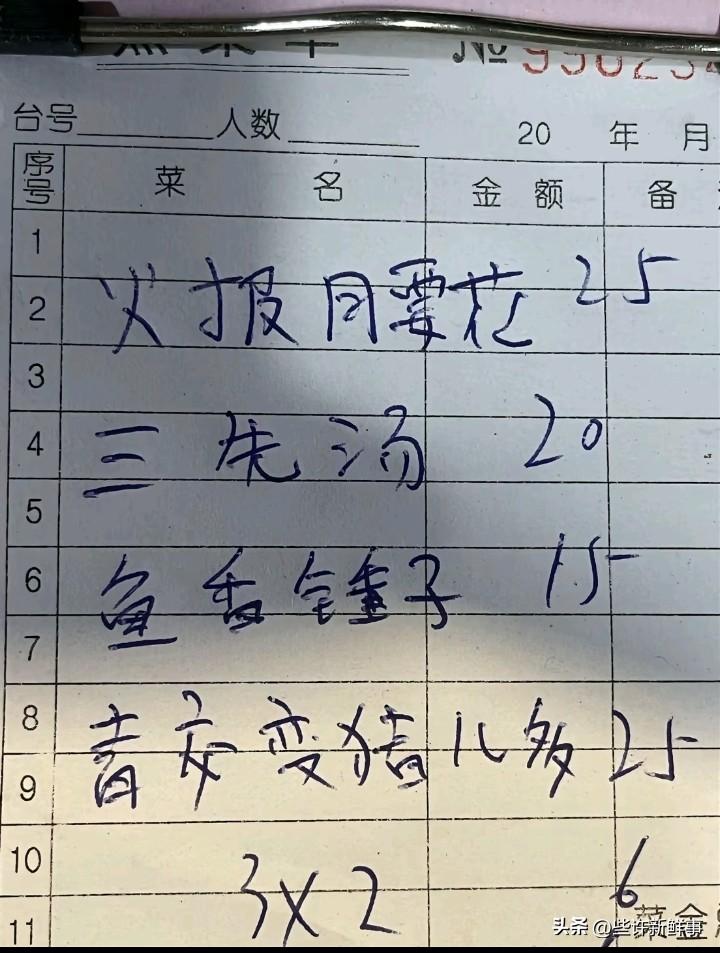 台号 人数 20 年 月
序号 菜名 金额 备
1
2 火报腰花 25
3
4 三先汤 20
5
6 鱼香锺子 15
7
8 青交变猪儿多 25
9
10 3X2 6
11 菜金
头条 @些许新鲜事